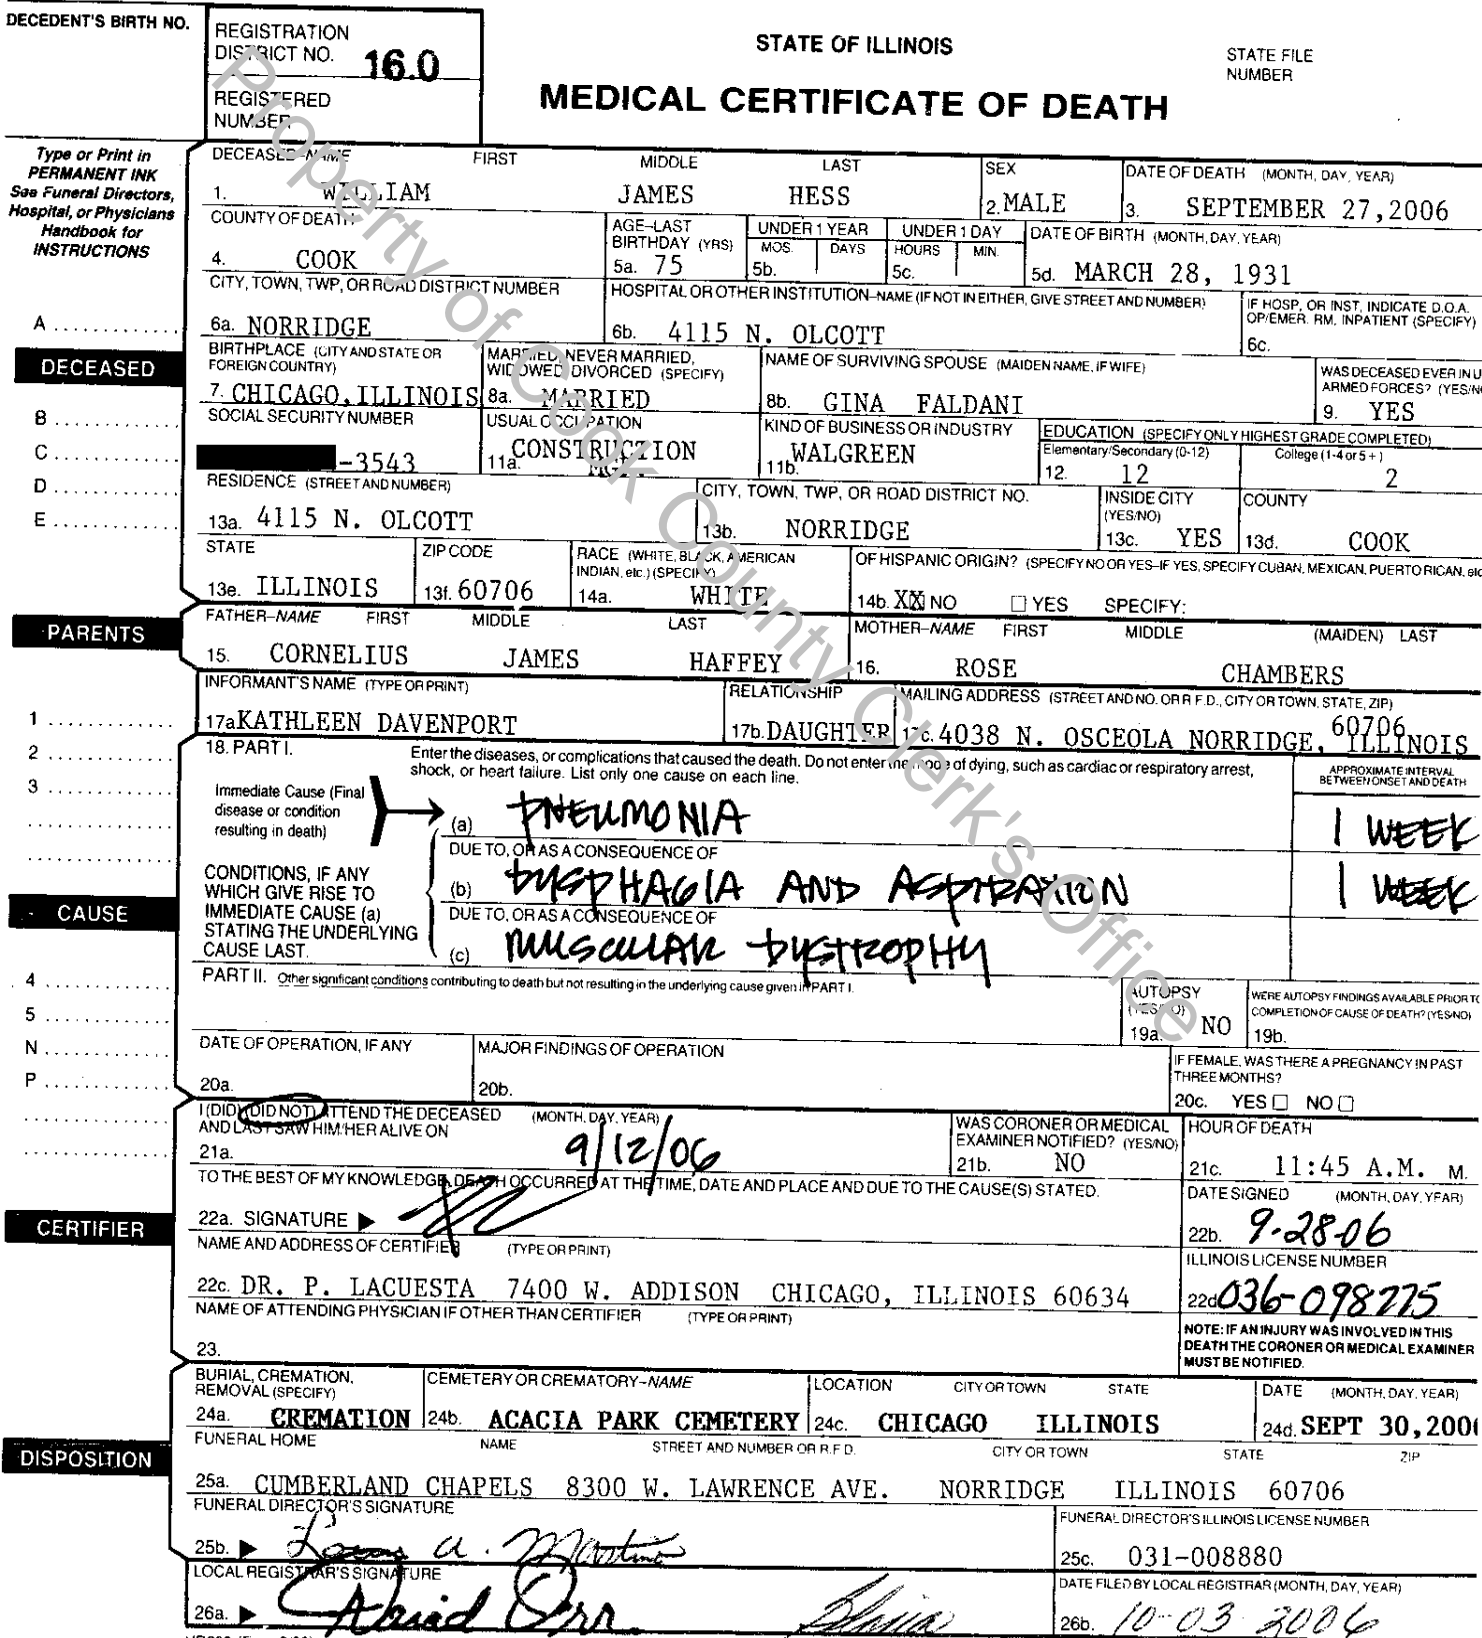 DECEDENT'S BIRTH NO.
REGISTRATION DISTRICT NO. 16.0
REGISTERED NUMBER
STATE OF ILLINOIS
STATE FILE NUMBER
MEDICAL CERTIFICATE OF DEATH
Type or Print in
PERMANENT INK
See Funeral Directors,
Hospital, or Physicians
Handbook for
INSTRUCTIONS
DECEASED–NAME FIRST MIDDLE LAST
1. WILLIAM JAMES HESS
SEX
2. MALE
DATE OF DEATH (MONTH, DAY, YEAR)
3. SEPTEMBER 27,2006
COUNTY OF DEATH
4. COOK
AGE–LAST BIRTHDAY (YRS)
5a. 75
UNDER 1 YEAR
MOS. DAYS
5b.
UNDER 1 DAY
HOURS MIN.
5c.
DATE OF BIRTH (MONTH, DAY, YEAR)
5d. MARCH 28, 1931
CITY, TOWN, TWP, OR ROAD DISTRICT NUMBER
6a. NORRIDGE
HOSPITAL OR OTHER INSTITUTION–NAME (IF NOT IN EITHER, GIVE STREET AND NUMBER)
6b. 4115 N. OLCOTT
IF HOSP. OR INST. INDICATE D.O.A.
OP/EMER. RM, INPATIENT (SPECIFY)
6c.
A
DECEASED
B
C
D
E
BIRTHPLACE (CITY AND STATE OR
FOREIGN COUNTRY)
7. CHICAGO, ILLINOIS
MARRIED, NEVER MARRIED,
WIDOWED, DIVORCED (SPECIFY)
8a. MARRIED
NAME OF SURVIVING SPOUSE (MAIDEN NAME, IF WIFE)
8b. GINA FALDANI
WAS DECEASED EVER IN U
ARMED FORCES? (YES/N
9. YES
SOCIAL SECURITY NUMBER
-3543
USUAL OCCUPATION
11a. CONSTRUCTION
MGT.
KIND OF BUSINESS OR INDUSTRY
11b. WALGREEN
EDUCATION (SPECIFY ONLY HIGHEST GRADE COMPLETED)
Elementary/Secondary (0-12) College (1-4 or 5+)
12. 12 2
RESIDENCE (STREET AND NUMBER)
13a. 4115 N. OLCOTT
CITY, TOWN, TWP, OR ROAD DISTRICT NO.
13b. NORRIDGE
INSIDE CITY
(YES/NO)
13c. YES
COUNTY
13d. COOK
STATE
13e. ILLINOIS
ZIP CODE
13f. 60706
RACE (WHITE, BLACK, AMERICAN
INDIAN, etc.) (SPECIFY)
14a. WHITE
OF HISPANIC ORIGIN? (SPECIFY NO OR YES–IF YES, SPECIFY CUBAN, MEXICAN, PUERTO RICAN, etc
14b. XX NO YES SPECIFY:
PARENTS
FATHER–NAME FIRST MIDDLE LAST
15. CORNELIUS JAMES HAFFEY
MOTHER–NAME FIRST MIDDLE (MAIDEN) LAST
16. ROSE CHAMBERS
INFORMANT'S NAME (TYPE OR PRINT)
17a KATHLEEN DAVENPORT
RELATIONSHIP
17b. DAUGHTER
MAILING ADDRESS (STREET AND NO. OR R.F.D., CITY OR TOWN, STATE, ZIP)
60706
17c. 4038 N. OSCEOLA NORRIDGE, ILLINOIS
1
2
3
CAUSE
4
5
N
P
18. PART I. Enter the diseases, or complications that caused the death. Do not enter the mode of dying, such as cardiac or respiratory arrest,
shock, or heart failure. List only one cause on each line.
APPROXIMATE INTERVAL
BETWEEN ONSET AND DEATH
Immediate Cause (Final
disease or condition
resulting in death)
(a) PNEUMONIA 1 WEEK
DUE TO, OR AS A CONSEQUENCE OF
CONDITIONS, IF ANY
WHICH GIVE RISE TO
IMMEDIATE CAUSE (a)
STATING THE UNDERLYING
CAUSE LAST.
(b) DYSPHAGIA AND ASPIRATION 1 WEEK
DUE TO, OR AS A CONSEQUENCE OF
(c) MUSCULAR DYSTROPHY
PART II. Other significant conditions contributing to death but not resulting in the underlying cause given in PART I.
AUTOPSY
(YES/NO)
19a. NO
WERE AUTOPSY FINDINGS AVAILABLE PRIOR TO
COMPLETION OF CAUSE OF DEATH? (YES/NO)
19b.
DATE OF OPERATION, IF ANY
20a.
MAJOR FINDINGS OF OPERATION
20b.
IF FEMALE, WAS THERE A PREGNANCY IN PAST
THREE MONTHS?
20c. YES NO
I (DID) (DID NOT) ATTEND THE DECEASED (MONTH, DAY, YEAR)
AND LAST SAW HIM/HER ALIVE ON
21a. 9/12/06
WAS CORONER OR MEDICAL
EXAMINER NOTIFIED? (YES/NO)
21b. NO
HOUR OF DEATH
21c. 11:45 A.M. M.
TO THE BEST OF MY KNOWLEDGE, DEATH OCCURRED AT THE TIME, DATE AND PLACE AND DUE TO THE CAUSE(S) STATED.
CERTIFIER
22a. SIGNATURE
DATE SIGNED (MONTH, DAY, YEAR)
22b. 9-28-06
NAME AND ADDRESS OF CERTIFIER (TYPE OR PRINT)
22c. DR. P. LACUESTA 7400 W. ADDISON CHICAGO, ILLINOIS 60634
ILLINOIS LICENSE NUMBER
22d 036-098775
NAME OF ATTENDING PHYSICIAN IF OTHER THAN CERTIFIER (TYPE OR PRINT)
23.
NOTE: IF AN INJURY WAS INVOLVED IN THIS
DEATH THE CORONER OR MEDICAL EXAMINER
MUST BE NOTIFIED.
BURIAL, CREMATION,
REMOVAL (SPECIFY)
24a. CREMATION
CEMETERY OR CREMATORY–NAME
24b. ACACIA PARK CEMETERY
LOCATION CITY OR TOWN STATE
24c. CHICAGO ILLINOIS
DATE (MONTH, DAY, YEAR)
24d. SEPT 30,200
DISPOSITION
FUNERAL HOME NAME STREET AND NUMBER OR R.F.D. CITY OR TOWN STATE ZIP
25a. CUMBERLAND CHAPELS 8300 W. LAWRENCE AVE. NORRIDGE ILLINOIS 60706
FUNERAL DIRECTOR'S SIGNATURE
25b. a. Martino
FUNERAL DIRECTOR'S ILLINOIS LICENSE NUMBER
25c. 031-008880
LOCAL REGISTRAR'S SIGNATURE
26a. David Orr
DATE FILED BY LOCAL REGISTRAR (MONTH, DAY, YEAR)
26b. 10-03-2006
Property of Cook County Clerk's Office